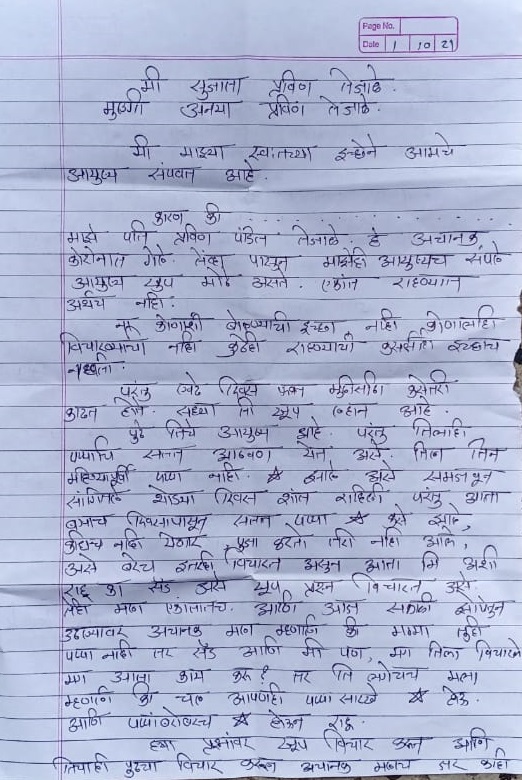 Page No.
Date 1 10 21
मी सुजाता प्रविण तेजाळे.
मुलगी अनया प्रविण तेजाळे.
मी माझ्या स्वःतच्या इच्छेने आमचे
आयुष्य संपवत आहे.
कारण की
माझे पति प्रविण पंडित तेजाळे हे अचानक
कोरोनात गेले. तेव्हा पासुन माझेही आयुष्यच संपले
आयुष्य खुप मोठे असते. एकांत राहण्यात
अर्थच नाही.
ना कोणाशी बोलण्याची इच्छा नाही कोणालाही
विचारण्याची नाही कुठेही राहण्याची कुसलीही इच्छाच
नव्हती.
परंतु एवढे दिवस फक्त मुलीसाठी कसेतरी
काढत होते. सध्या ती खुप लहान आहे.
पुढे तिचे आयुष्य आहे. परंतु तिलाही
पप्पाचि सतत आठवण येत असे. तिला तिन
महिण्यापूर्वी पप्पा नाही. झाले असे समजवून
सांगितले थोड्या दिवस शांत राहिली परंतु आता
बऱ्याच दिवसापासून सतत पप्पा कसे झाले,
कधिच नाही येणार पुजा करतो तरी नाही आले,
असे बरेच इतरही विचारत असुन आता मि अशी
राहू का सॅड असे खुप प्रश्न विचारत असे.
तेही मला एकांतातच. आणि आज सकाळी झोपेतुन
उठल्यावर अचानक मला म्हणाली की मम्मा तुही
पप्पा नाही तर सॅड आणि मी पण, मग तिला विचारले
मग आता काय करू? तर ति लगेचच मला
म्हणाली की चल आपणही पप्पा सारखे होऊ.
आणि पप्पांबरोबरच होऊन राहू.
ह्या प्रश्नांवर खुप विचार केला आणि
तिचाही पुढचा विचार करून अचानक मलाच तर काही